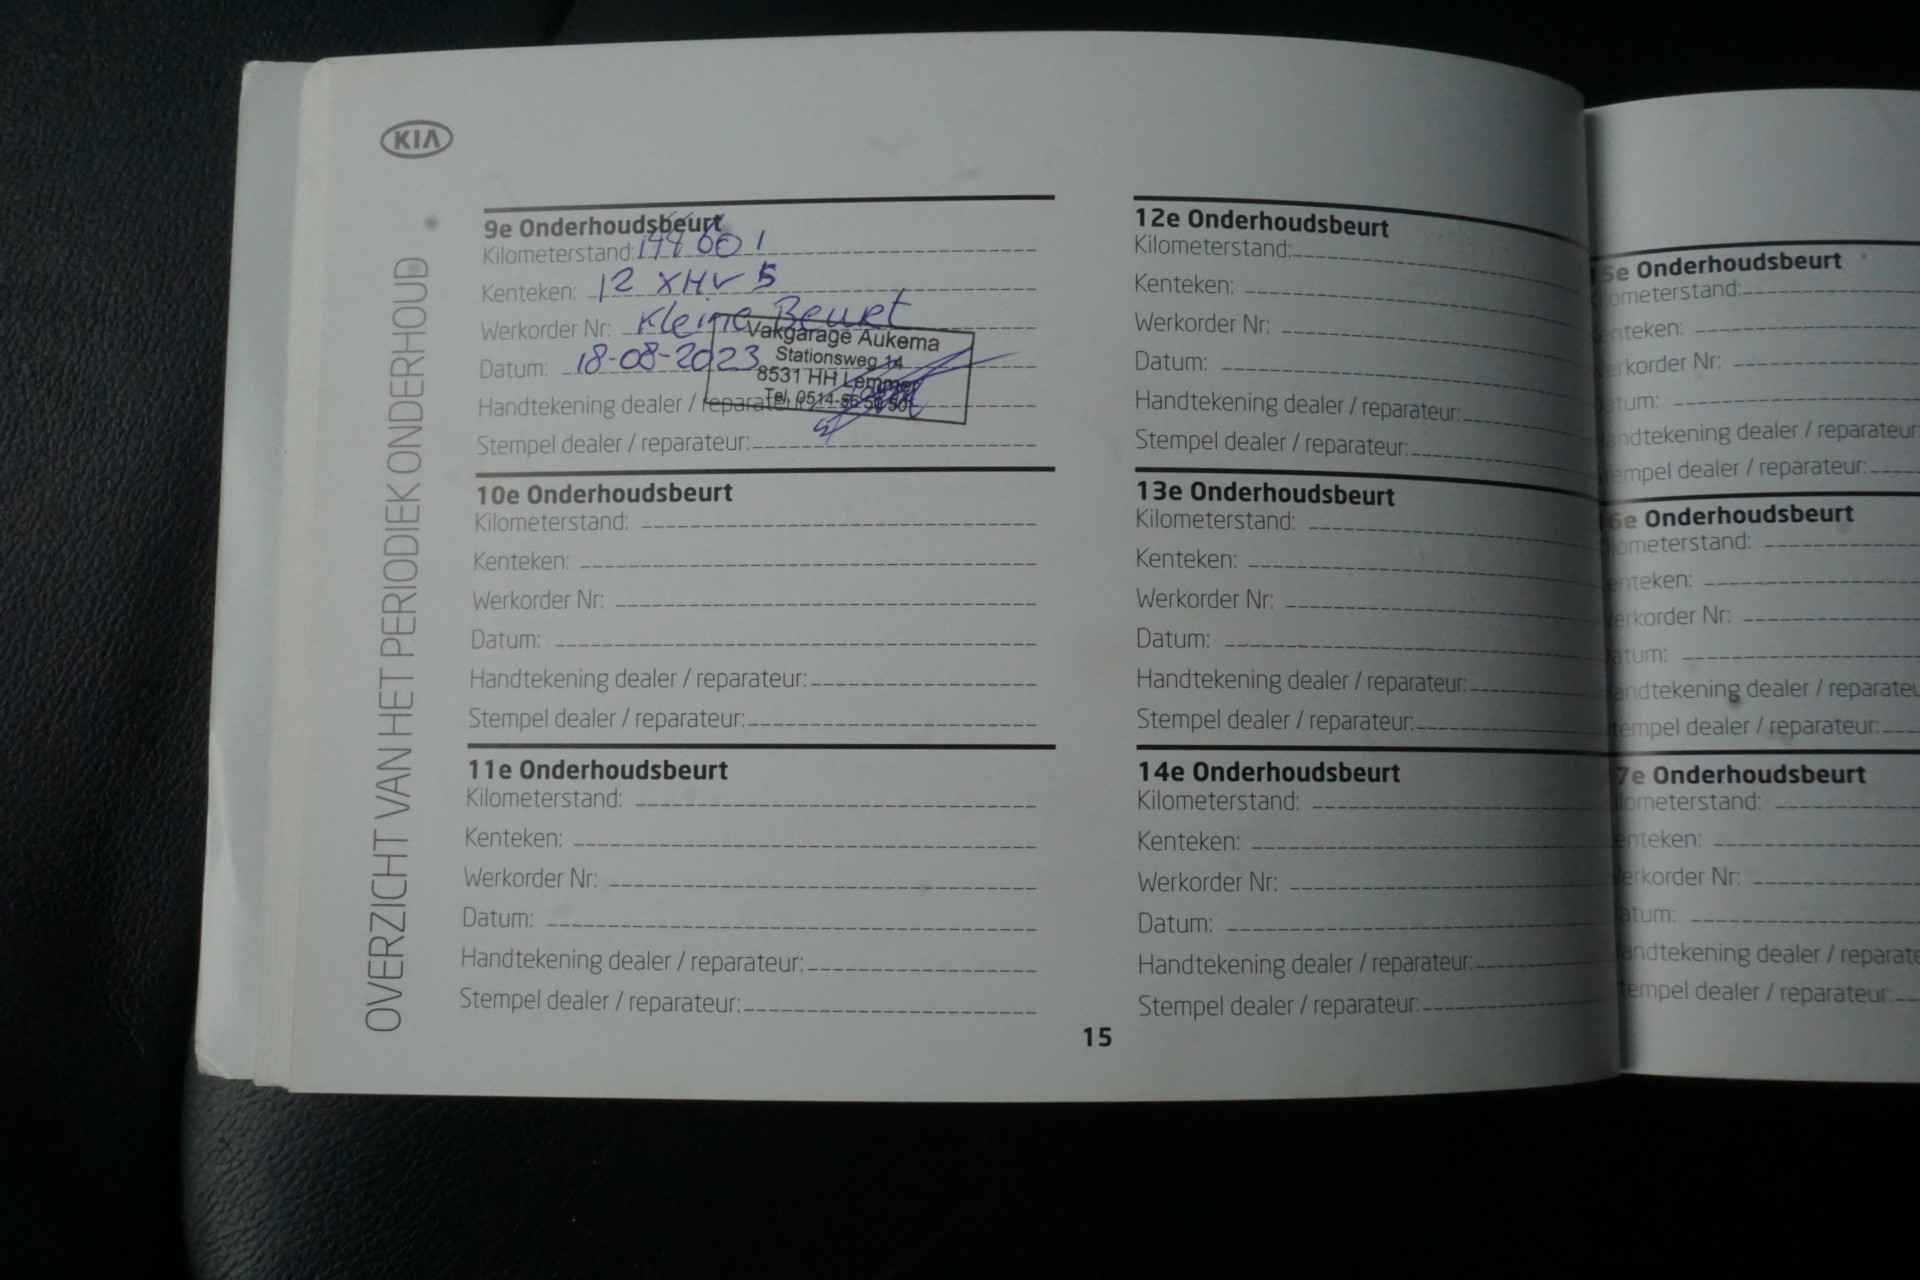 KIA
OVERZICHT VAN HET PERIODIEK ONDERHOUD
9e Onderhoudsbeurt
Kilometerstand:
Kenteken: 12 XHV 5
Werkorder Nr: Kleine Beurt
Datum: 18-08-2023
Handtekening dealer / reparateur:
Vakgarage Aukema
Stationsweg 14
8531 HH Lemmer
Tel. 0514-56
Stempel dealer / reparateur:
10e Onderhoudsbeurt
Kilometerstand:
Kenteken:
Werkorder Nr:
Datum:
Handtekening dealer / reparateur:
Stempel dealer / reparateur:
11e Onderhoudsbeurt
Kilometerstand:
Kenteken:
Werkorder Nr:
Datum:
Handtekening dealer / reparateur:
Stempel dealer / reparateur:
12e Onderhoudsbeurt
Kilometerstand:
Kenteken:
Werkorder Nr:
Datum:
Handtekening dealer / reparateur:
Stempel dealer / reparateur:
13e Onderhoudsbeurt
Kilometerstand:
Kenteken:
Werkorder Nr:
Datum:
Handtekening dealer / reparateur:
Stempel dealer / reparateur:
14e Onderhoudsbeurt
Kilometerstand:
Kenteken:
Werkorder Nr:
Datum:
Handtekening dealer / reparateur:
Stempel dealer / reparateur:
15
5e Onderhoudsbeurt
ometerstand:
enteken:
erkorder Nr:
atum:
ndtekening dealer / reparateur
empel dealer / reparateur:
6e Onderhoudsbeurt
ometerstand:
enteken:
erkorder Nr:
atum:
andtekening dealer / reparateu
tempel dealer / reparateur:
7e Onderhoudsbeurt
ometerstand:
enteken:
erkorder Nr:
atum:
andtekening dealer / reparate
tempel dealer / reparateur: